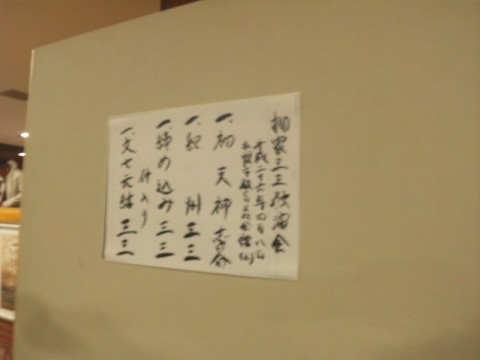 柳家三三独演会
平成二十六年四月八日
一、初天神 
一、紀州 三三
一、締め込み 三三
仲入り
一、文七元結 三三